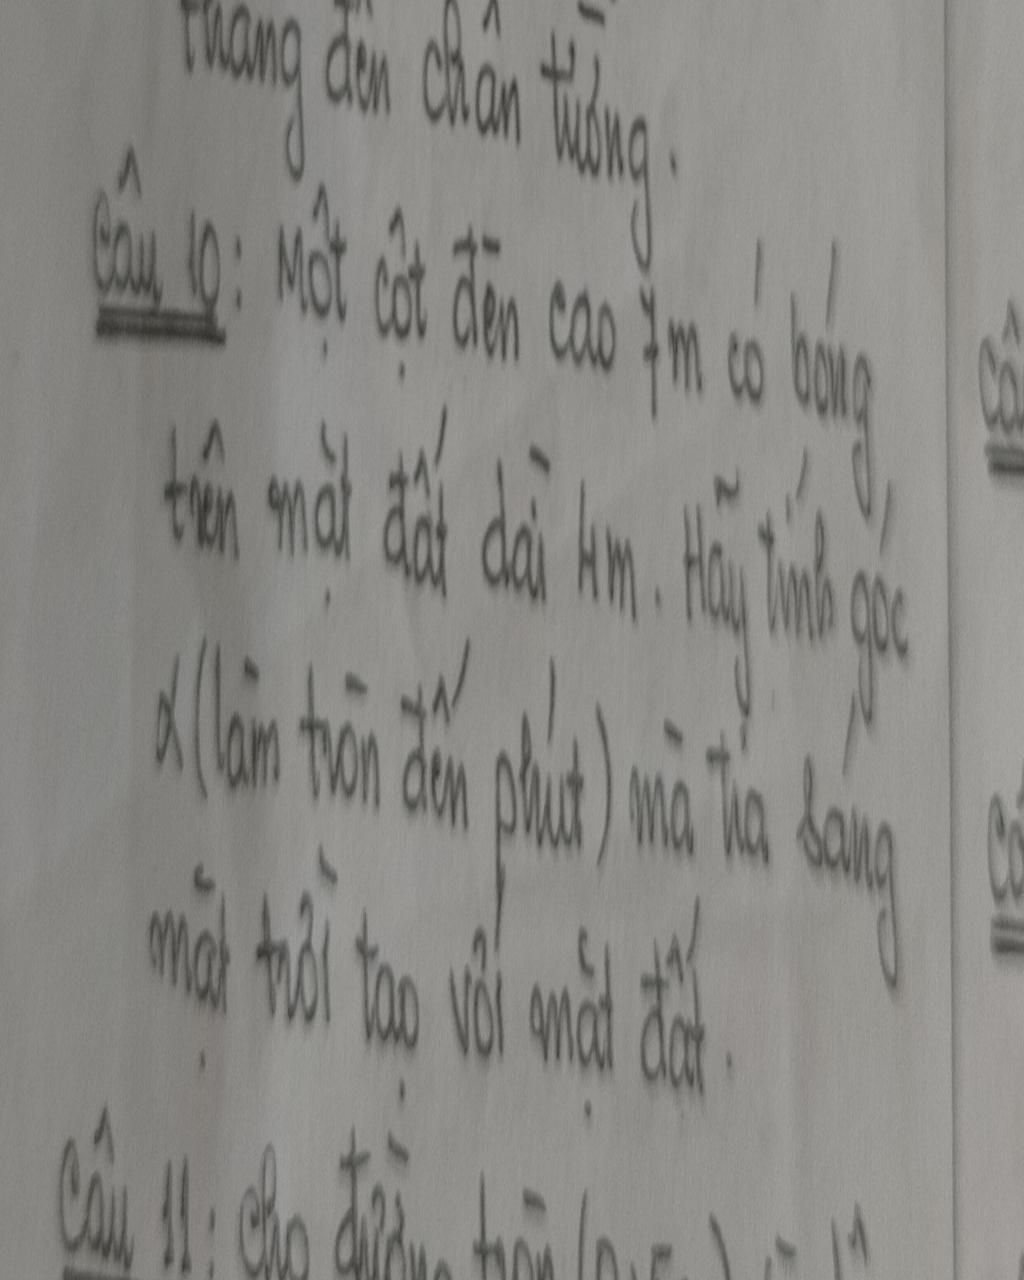 thang đến chân tường.
Câu 10: Một cột đèn cao 7m có bóng
trên mặt đất dài 4m. Hãy tính góc
α (làm tròn đến phút) mà tia sáng
mặt trời tạo với mặt đất.
Câu 11: Cho đường tròn